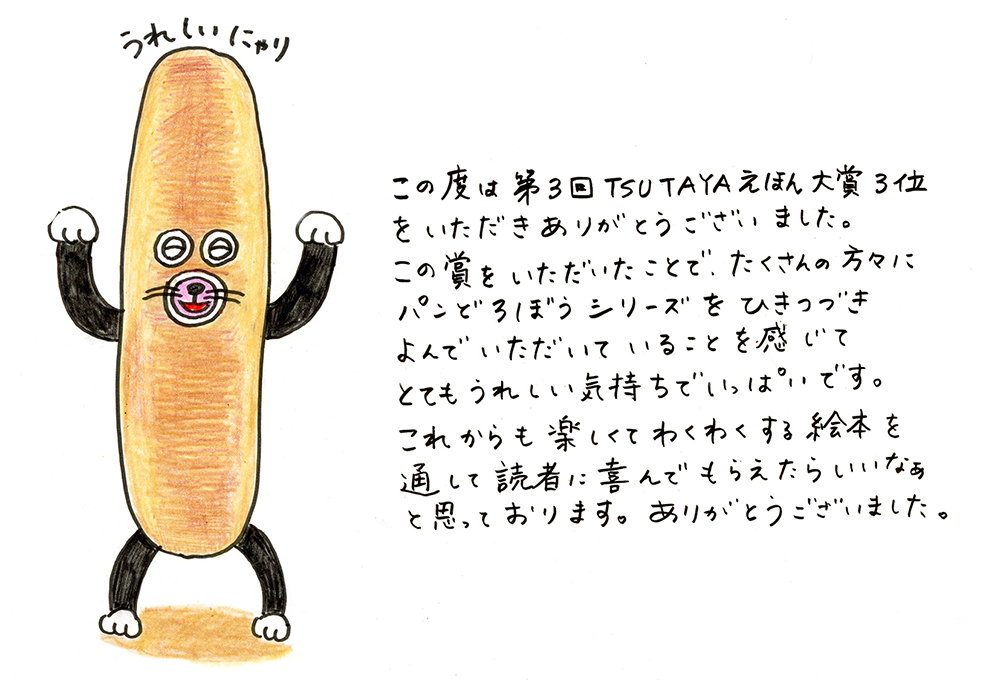 うれしいにゃり
この度は第3回TSUTAYAえほん大賞3位
をいただきありがとうございました。
この賞をいただいたことで、たくさんの方々に
パンどろぼうシリーズをひきつづき
よんでいただいていることを感じて
とてもうれしい気持ちでいっぱいです。
これからも楽しくてわくわくする絵本を
通して読者に喜んでもらえたらいいなぁ
と思っております。ありがとうございました。